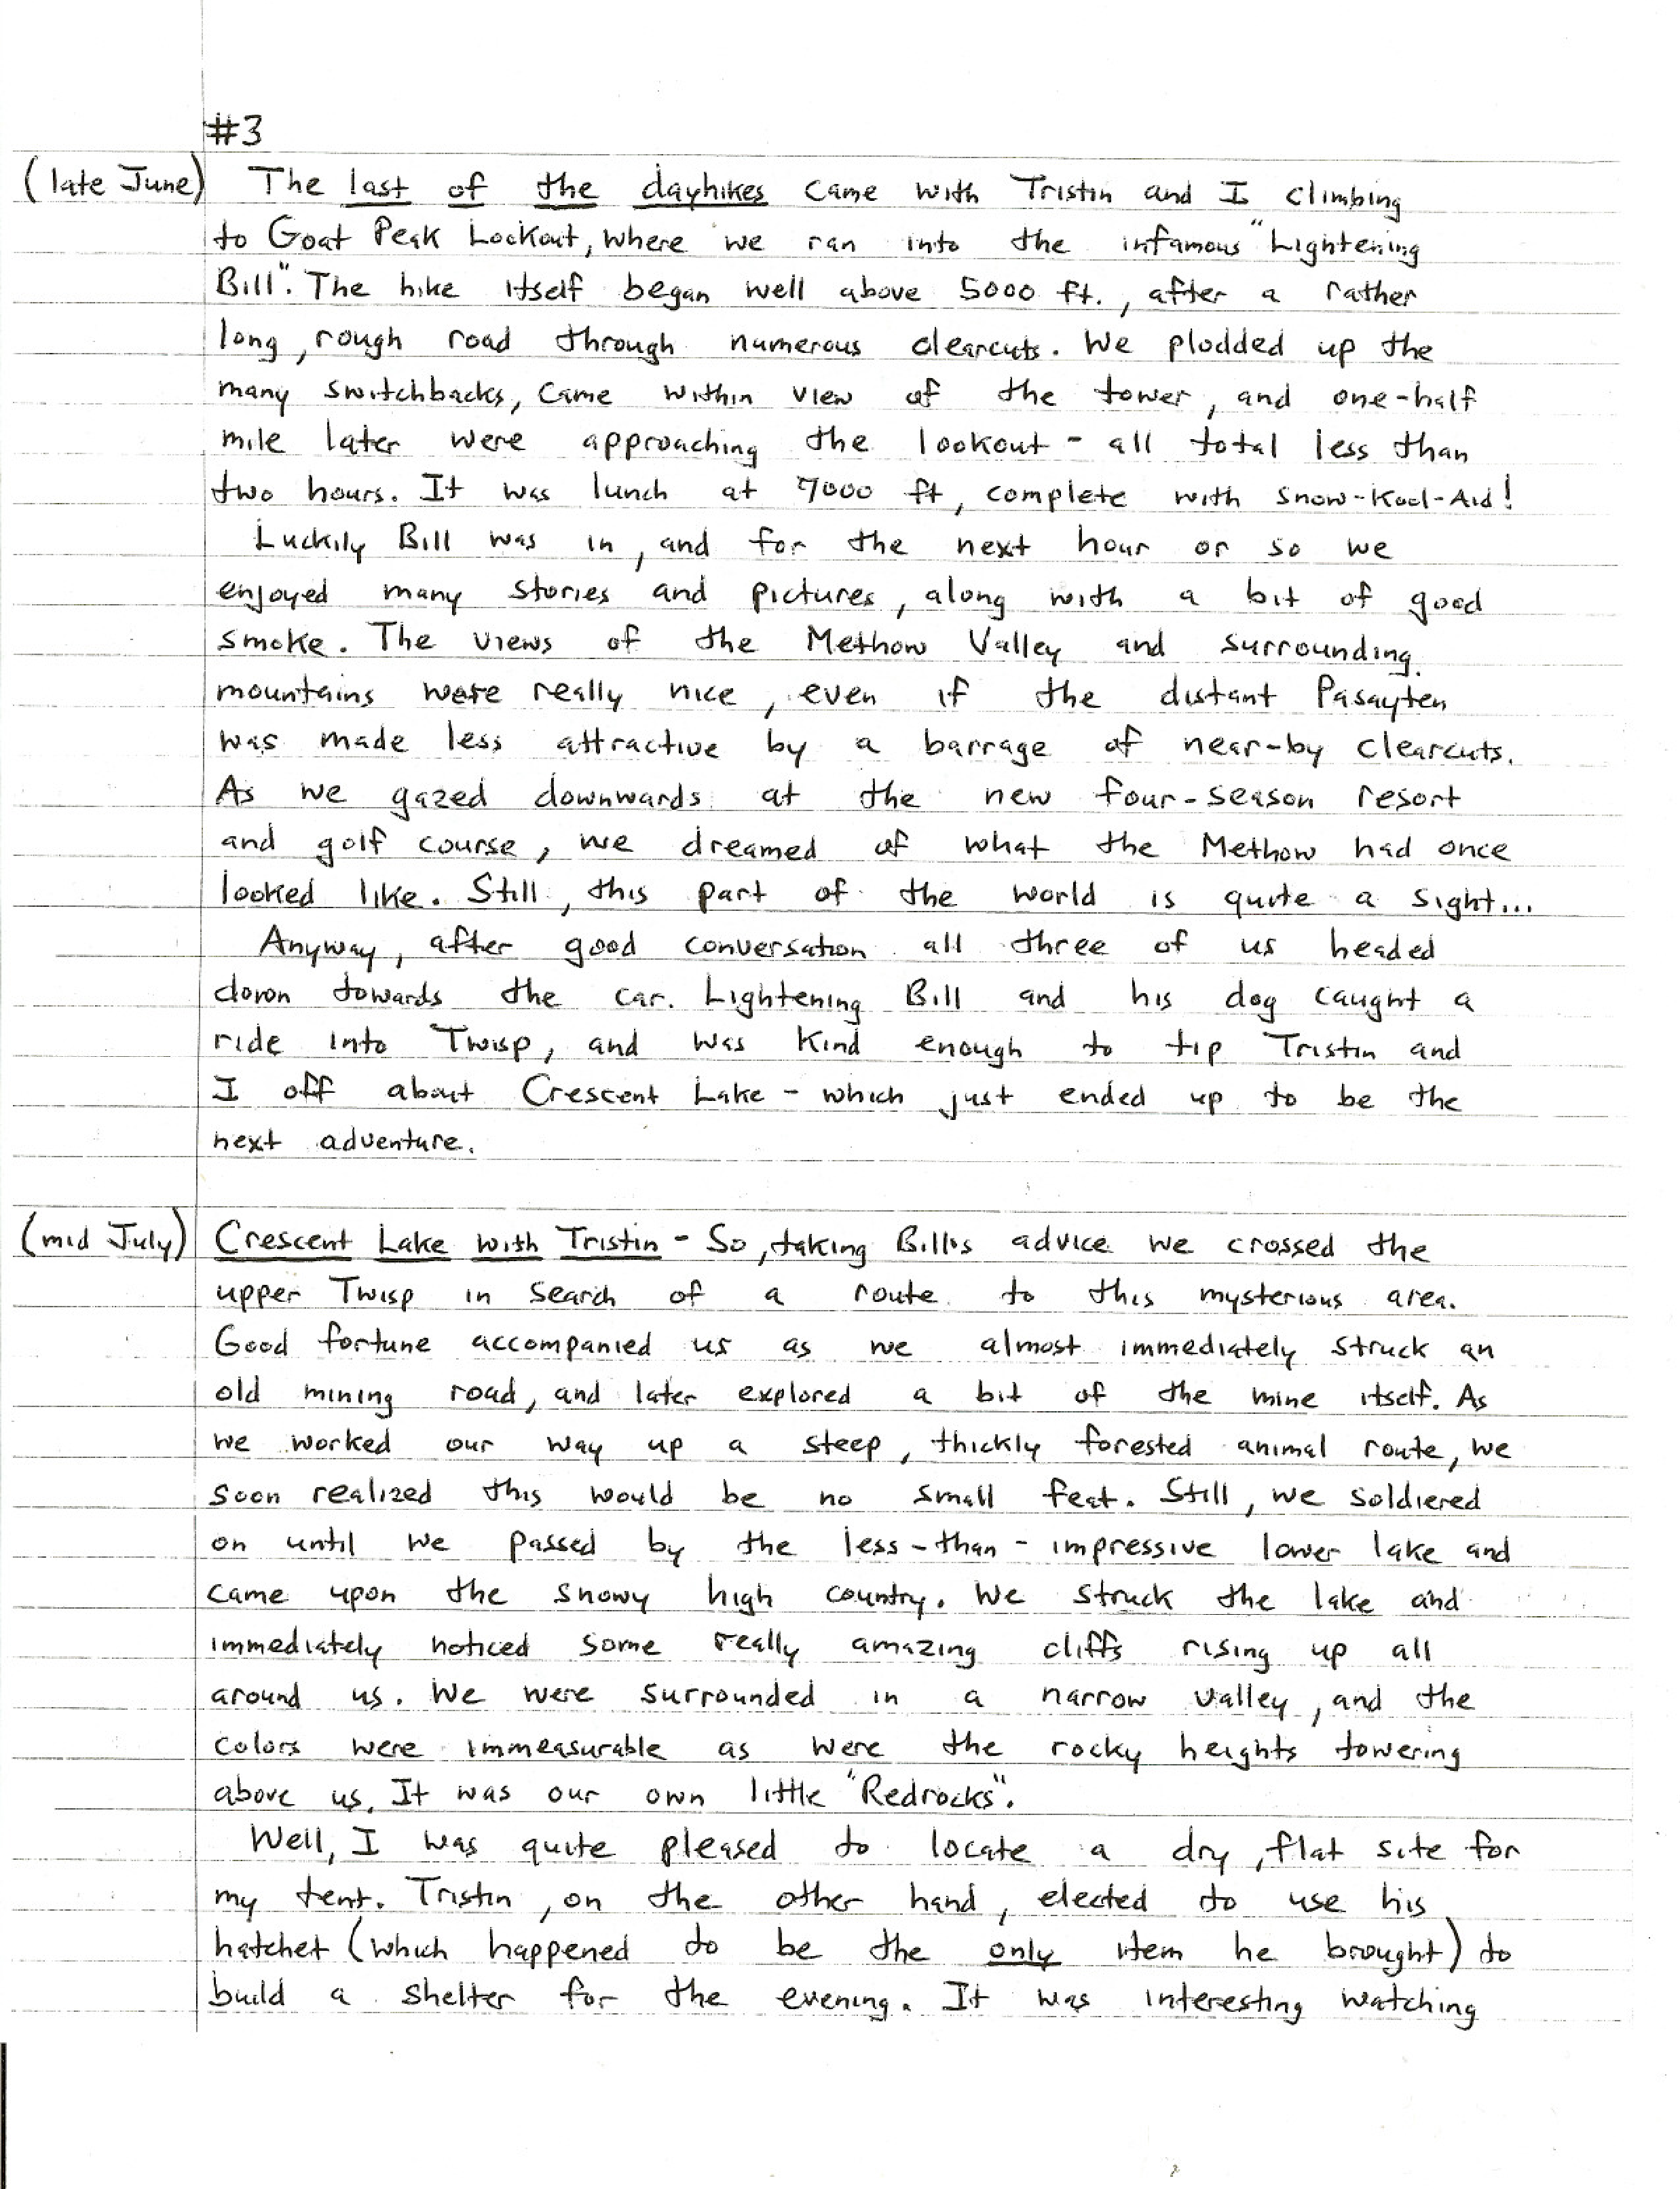 #3
(late June) The last of the dayhikes came with Tristin and I climbing
to Goat Peak Lookout, where we ran into the infamous "Lightening
Bill". The hike itself began well above 5000 ft., after a rather
long, rough road through numerous clearcuts. We plodded up the
many switchbacks, came within view of the tower, and one-half
mile later were approaching the lookout - all total less than
two hours. It was lunch at 7000 ft, complete with snow-Kool-Aid!
Luckily Bill was in, and for the next hour or so we
enjoyed many stories and pictures, along with a bit of good
smoke. The views of the Methow Valley and surrounding
mountains were really nice, even if the distant Pasayten
was made less attractive by a barrage of near-by clearcuts.
As we gazed downwards at the new four-season resort
and golf course, we dreamed of what the Methow had once
looked like. Still, this part of the world is quite a sight...
Anyway, after good conversation all three of us headed
down towards the car. Lightening Bill and his dog caught a
ride into Twisp, and was kind enough to tip Tristin and
I off about Crescent Lake - which just ended up to be the
next adventure.
(mid July) Crescent Lake with Tristin - So, taking Bill's advice we crossed the
upper Twisp in search of a route to this mysterious area.
Good fortune accompanied us as we almost immediately struck an
old mining road, and later explored a bit of the mine itself. As
we worked our way up a steep, thickly forested animal route, we
soon realized this would be no small feat. Still, we soldiered
on until we passed by the less-than-impressive lower lake and
came upon the snowy high country. We struck the lake and
immediately noticed some really amazing cliffs rising up all
around us. We were surrounded in a narrow valley, and the
colors were immeasurable as were the rocky heights towering
above us. It was our own little "Redrocks".
Well, I was quite pleased to locate a dry, flat site for
my tent. Tristin, on the other hand, elected to use his
hatchet (which happened to be the only item he brought) to
build a shelter for the evening. It was interesting watching